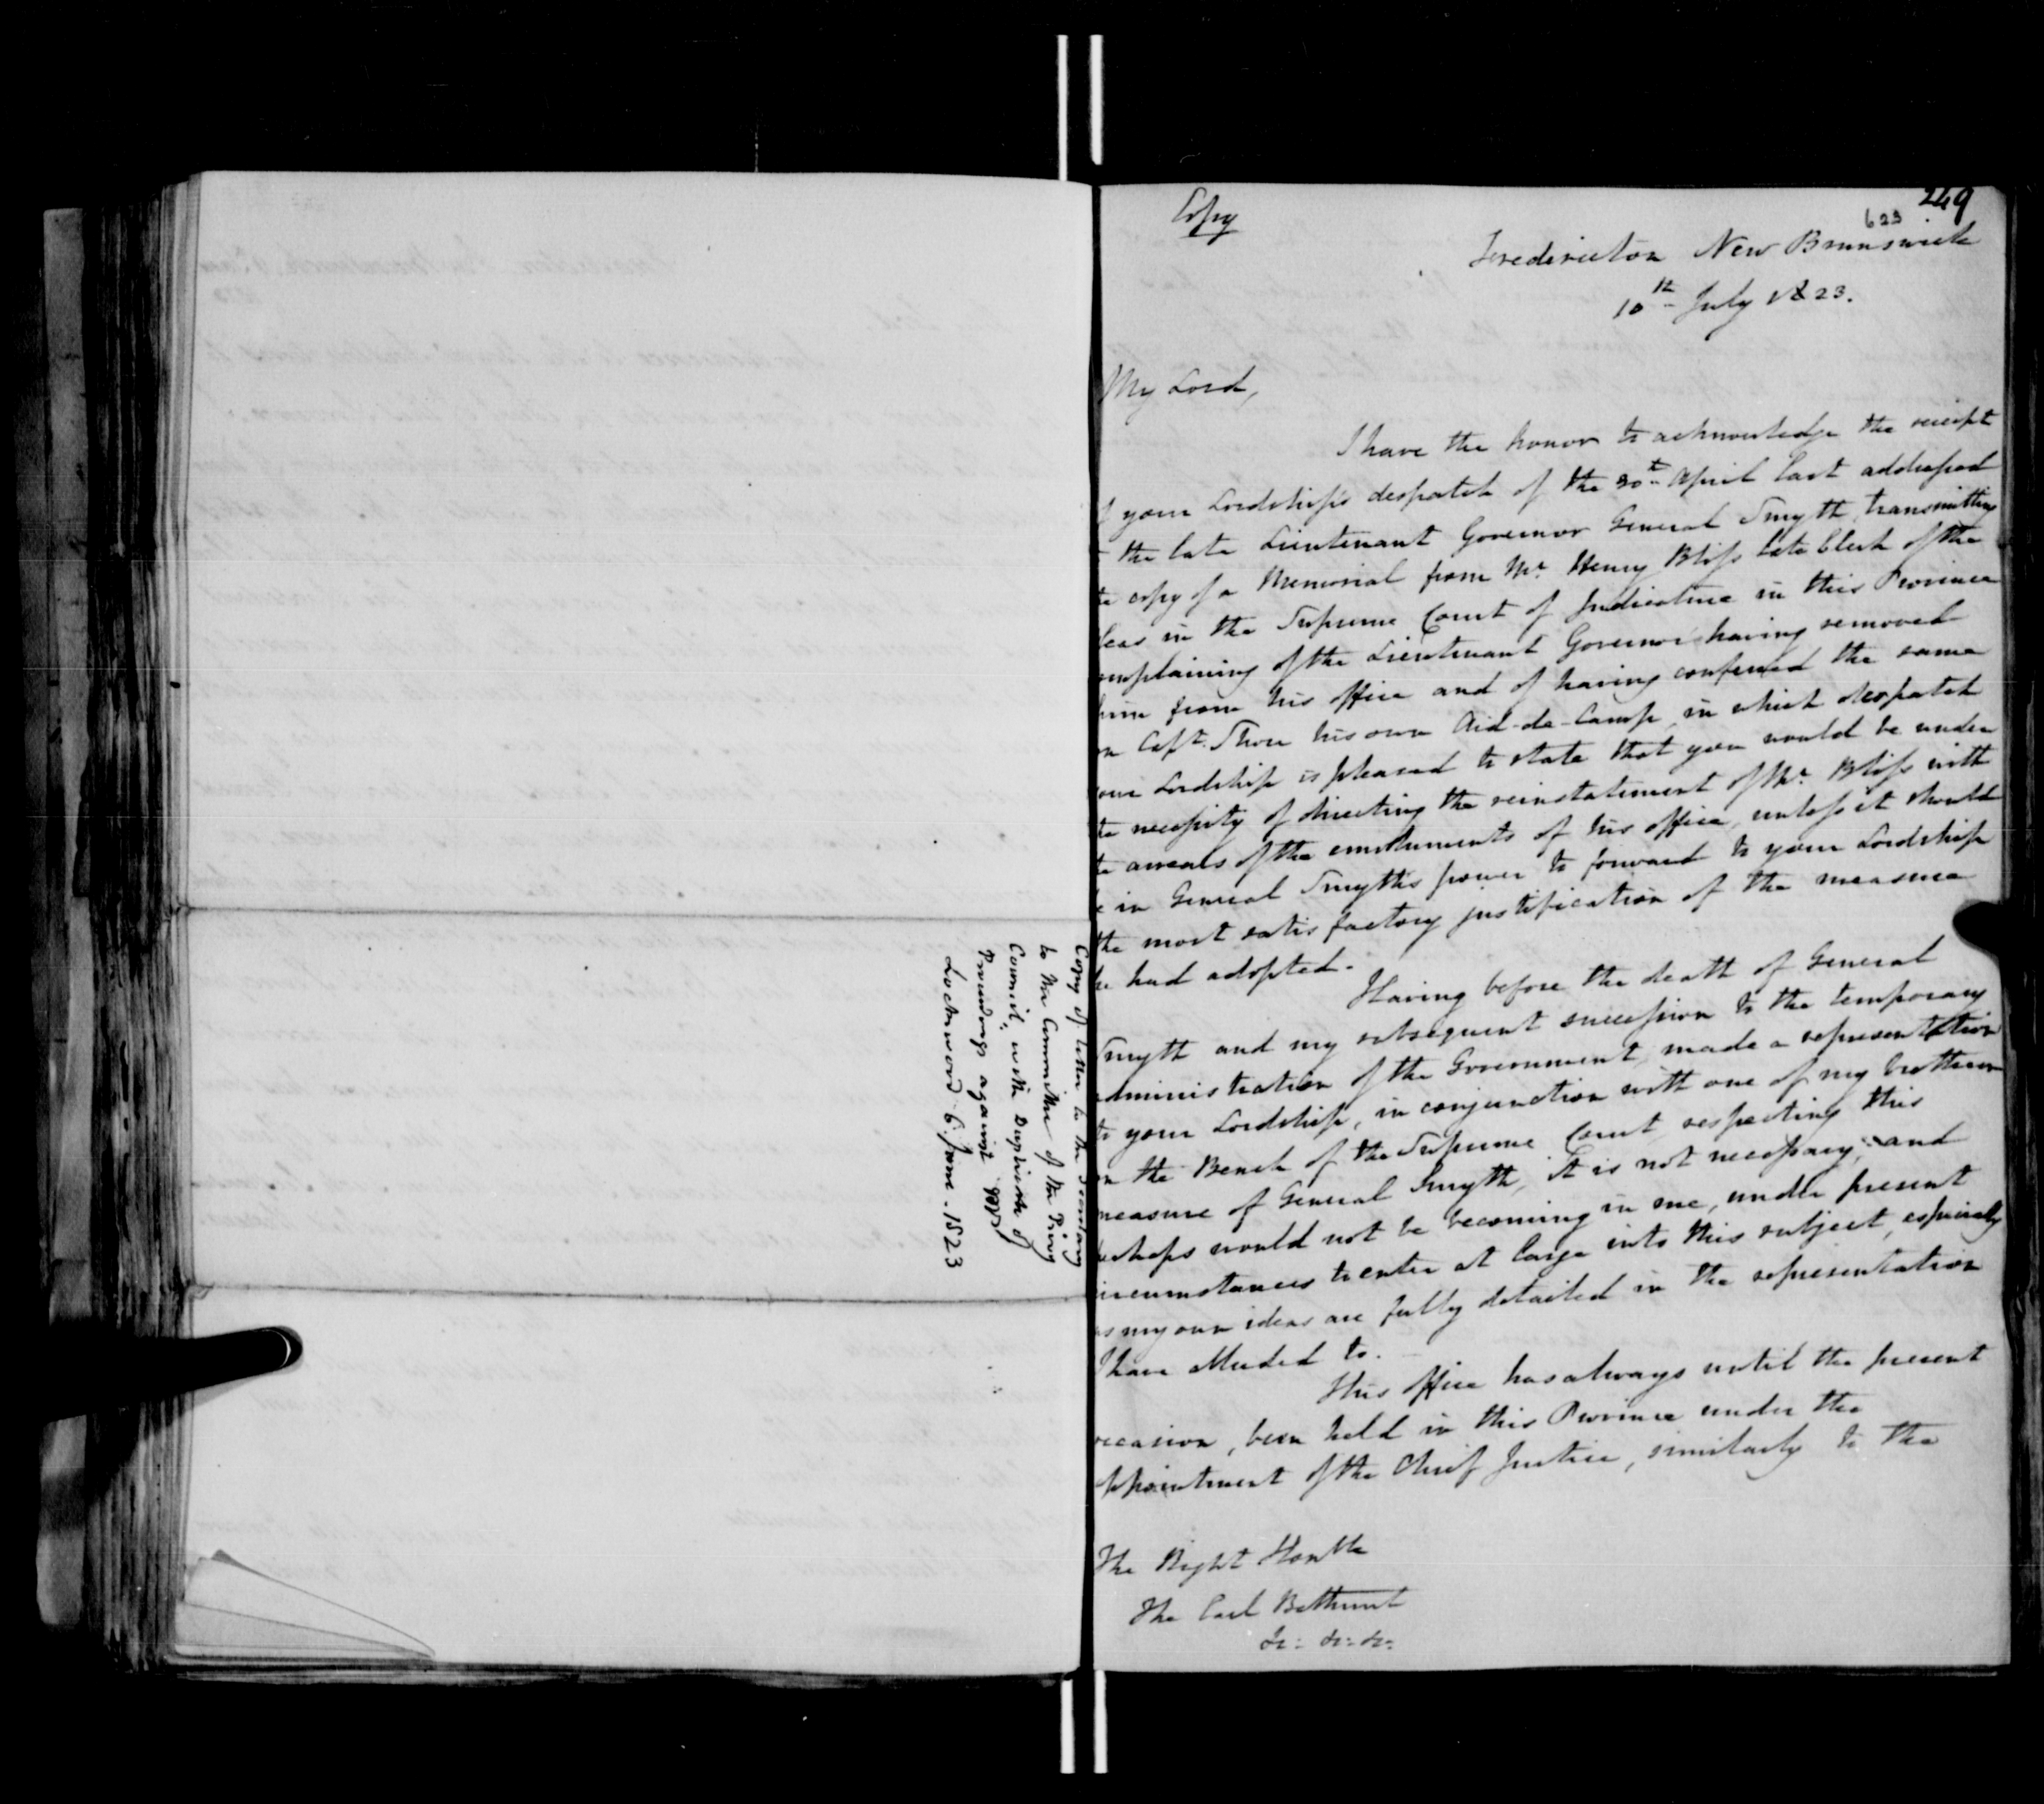 Copy of letter to the Secretary
to the Committee of the Privy
Council, with Duplicate of
Proceedings against Mr
Lockwood 6. June. 1823
249
623
Copy
Fredericton New Brunswick
10th July 1823.
My Lord,
I have the honor to acknowledge the receipt
of your Lordship's despatch of the 30th April last addressed
to the late Lieutenant Governor General Smyth, transmitting
the copy of a Memorial from Mr. Henry Bliss late Clerk of the
Pleas in the Supreme Court of Judicature in this Province
complaining of the Lieutenant Governor's having removed
him from his office and of having conferred the same
on Capt. Shore his own Aid-de-Camp, in which despatch
your Lordship is pleased to state that you would be under
the necessity of directing the reinstatement of Mr. Bliss with
the arrears of the emoluments of his office, unless it should
be in General Smyth's power to forward to your Lordship
the most satisfactory justification of the measure
he had adopted.
Having before the death of General
Smyth and my subsequent succession to the temporary
administration of the Government, made a representation
to your Lordship, in conjunction with one of my brethren
on the Bench of the Supreme Court respecting this
measure of General Smyth, it is not necessary, and
perhaps would not be becoming in me, under present
circumstances to enter at large into this subject, especially
as my own ideas are fully detailed in the representation
I have alluded to.
This office has always until the present
occasion, been held in this Province under the
appointment of the Chief Justice, similarly to the
The Right Honble
The Earl Bathurst
&c: &c: &c: